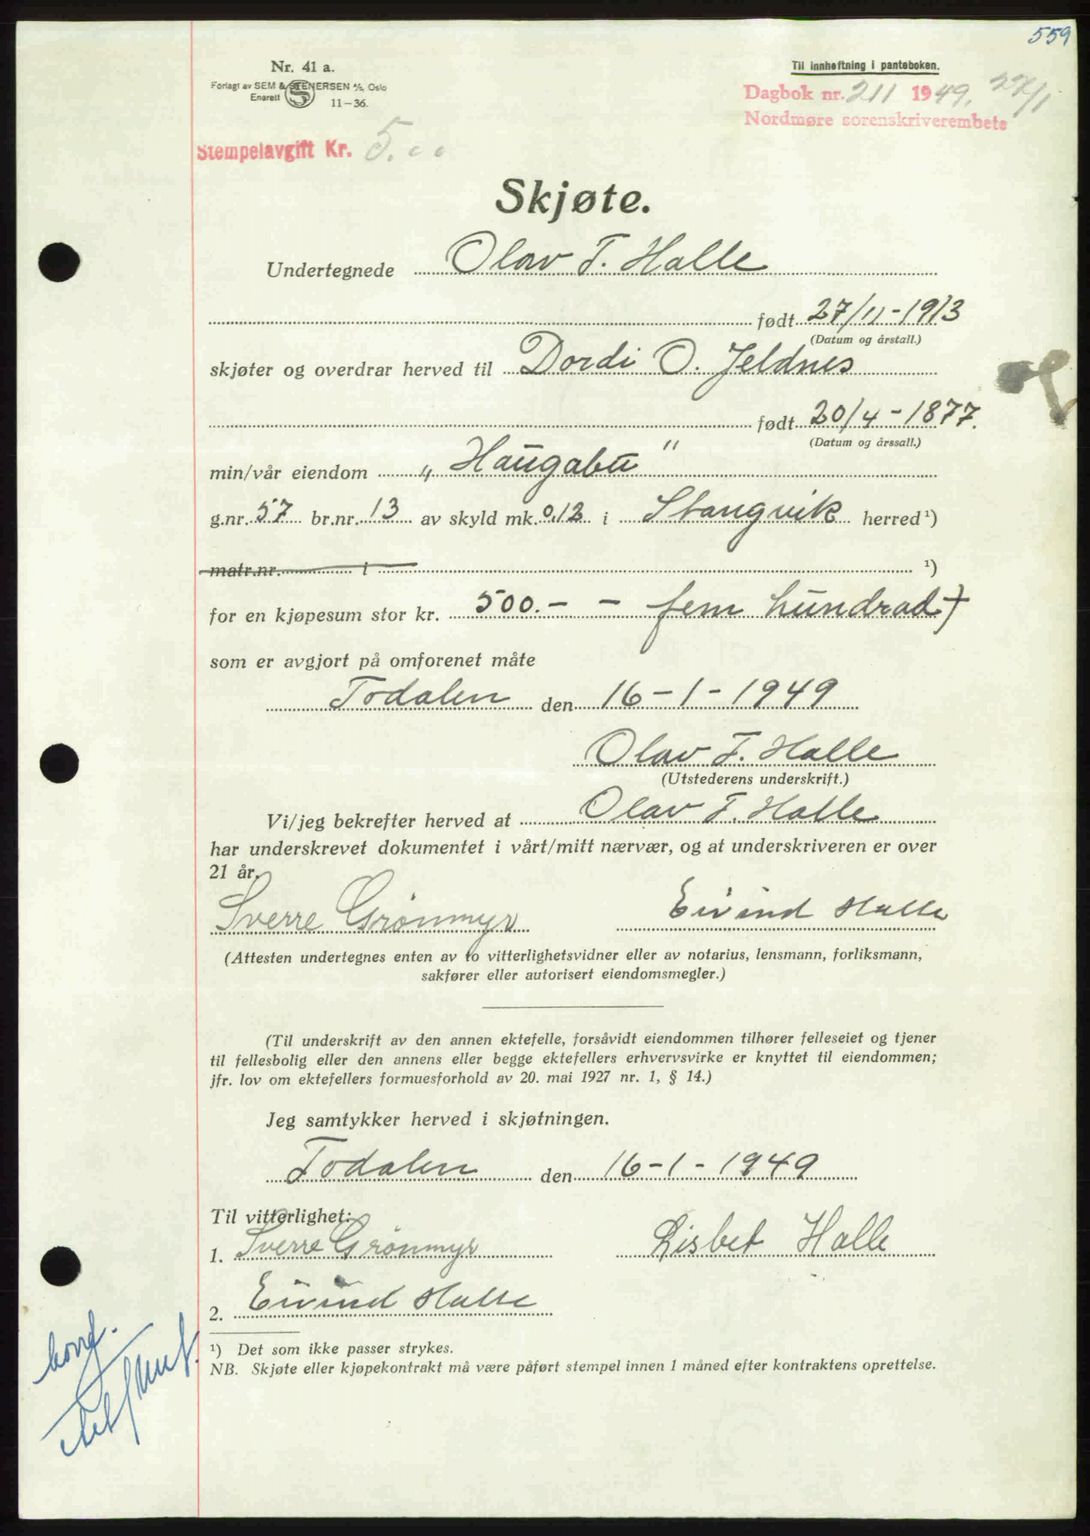 559
Nr. 41 a.
Forlagt av SEM & STENERSEN A/S, Oslo
Enerett S 11-36.
Til innheftning i panteboken.
Dagbok nr. 211 1949. 22/1
Nordmøre sorenskriverembete
Stempelavgift Kr. 5.00
Skjøte.
Undertegnede Olav F. Halle
født 27/11-1913
(Datum og årstall.)
skjøter og overdrar herved til Dordi O. Jeldnes
født 20/4-1877.
(Datum og årssall.)
min/vår eiendom „Haugabu"
g.nr. 57 br.nr. 13 av skyld mk. 0,12 i Stangvik herred ¹)
matr.nr. i ¹)
for en kjøpesum stor kr. 500.- - fem hundrad
som er avgjort på omforenet måte
Todalen den 16-1-1949
Olav F. Halle
(Utstederens underskrift.)
Vi/jeg bekrefter herved at Olav F. Halle
har underskrevet dokumentet i vårt/mitt nærvær, og at underskriveren er over
21 år.
Sverre Grønmyr Eivind Halle
(Attesten undertegnes enten av to vitterlighetsvidner eller av notarius, lensmann, forliksmann,
sakfører eller autorisert eiendomsmegler.)
(Til underskrift av den annen ektefelle, forsåvidt eiendommen tilhører felleseiet og tjener
til fellesbolig eller den annens eller begge ektefellers erhvervsvirke er knyttet til eiendommen;
jfr. lov om ektefellers formuesforhold av 20. mai 1927 nr. 1, § 14.)
Jeg samtykker herved i skjøtningen.
Todalen den 16-1-1949
Til vitterlighet:
1. Sverre Grønmyr Lisbet Halle
2. Eivind Halle
¹) Det som ikke passer strykes.
NB. Skjøte eller kjøpekontrakt må være påført stempel innen 1 måned efter kontraktens oprettelse.